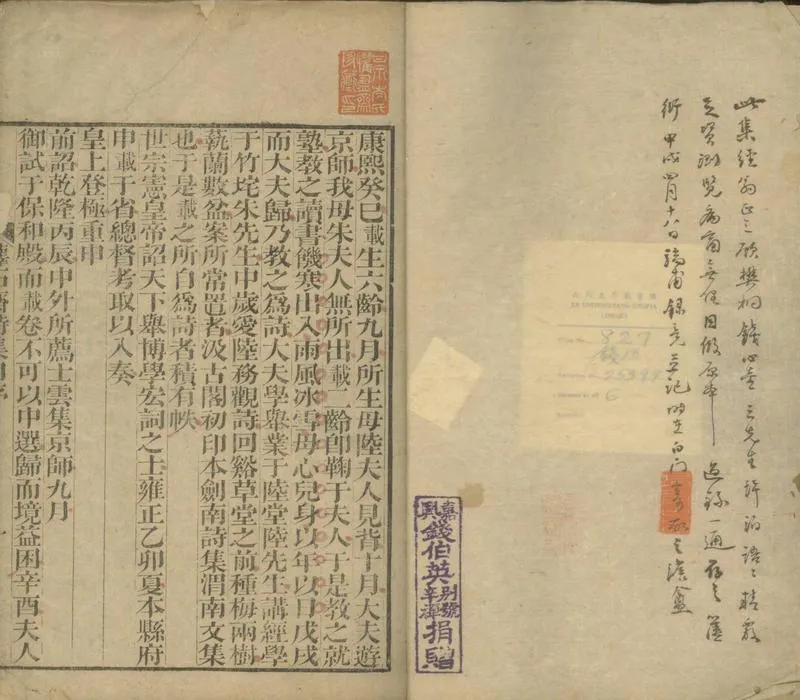 此集經翁正三顧樊桐錢心壺三先生評泊語語精嚴
足資瀏覽病齋無俚因假原本過錄一通存之篋
衍甲戌四月十八日瑞甫錄竟並記時在白门
827
6
嘉興錢伯英別號辛禪捐贈
康熙癸巳載生六齡九月所生母陸夫人見背十月大夫遊
京師我母朱夫人無所出載二齡卽鞠于夫人于是教之就
塾教之讀書饑寒出入雨風冰雪母心兒身以年以日戊戌
而大夫歸乃教之爲詩大夫學舉業于陸堂陸先生講經學
于竹垞朱先生中歲愛陸務觀詩回谿草堂之前種梅兩樹
蓺蘭數盆案所常置者汲古閣初印本劍南詩集渭南文集
也于是載之所自爲詩者積有帙
世宗憲皇帝詔天下舉博學宏詞之士雍正乙卯夏本縣府
申載于省總督考取以入奏
皇上登極重申
前詔乾隆丙辰中外所薦士雲集京師九月
御試于保和殿而載卷不可以中選歸而境益困辛酉夫人
石齋詩集自序